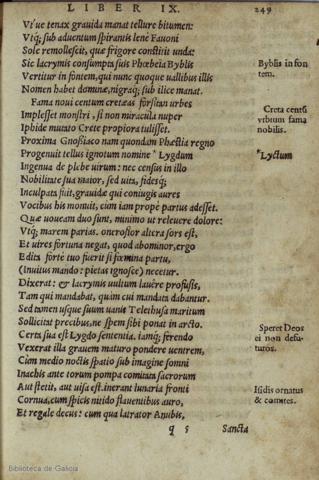 LIBER IX. 249
Vt'ue tenax grauida manat tellure bitumen:
Vtq; sub aduentum spirantis lene Fauoni
Sole remollescit, quæ frigore constitit unda:
Sic lacrymis consumpta suis Phœbeia Byblis
Byblis in fontem.
Vertitur in fontem, qui nunc quoque uallibus illis
Nomen habet dominæ, nigraq; sub ilice manat.
Fama noui centum cretæas forsitan urbes
Creta centũ vrbium fama nobilis.
Implesset monstri, si non miracula nuper
Iphide mutato Crete propiora tulisset.
Proxima Gnossiaco nam quondam Phæstia regno
Progenuit tellus ignotum nomine *Lygdum
*Lyctum
Ingenua de plebe uirum: nec census in illo
Nobilitate sua maior, sed uita, fidesq;
Inculpata fuit, grauidæ qui coniugis aures
Vocibus his monuit, cum iam prope partus adesset.
Quæ uoueam duo sunt, minimo ut releuere dolore:
Vtq; marem parias. onerosior altera sors est,
Et uires fortuna negat, quod abominor, ergo
Edita forte tuo fuerit si fœmina partu,
(Inuitus mando: pietas ignosce) necetur.
Dixerat: & lacrymis uultum lauere profusis,
Tam qui mandabat, quam cui mandata dabantur.
Sed tamen usque suum uanis Telethusa maritum
Sollicitat precibus, ne spem sibi ponat in arcto.
Speret Deos ei non defuturos.
Certa sua est Lygdo sententia. iamq; ferendo
Vexerat illa grauem maturo pondere uentrem,
Cum medio noctis spatio sub imagine somni
Inachis ante torum pompa comitata sacrorum
Aut stetit, aut uisa est. inerant lunaria fronti
Isidis ornatus & comites.
Cornua, cum spicis nitido flauentibus auro,
Et regale decus: cum qua latrator Anubis,
q 5 Sancta
Biblioteca de Galicia